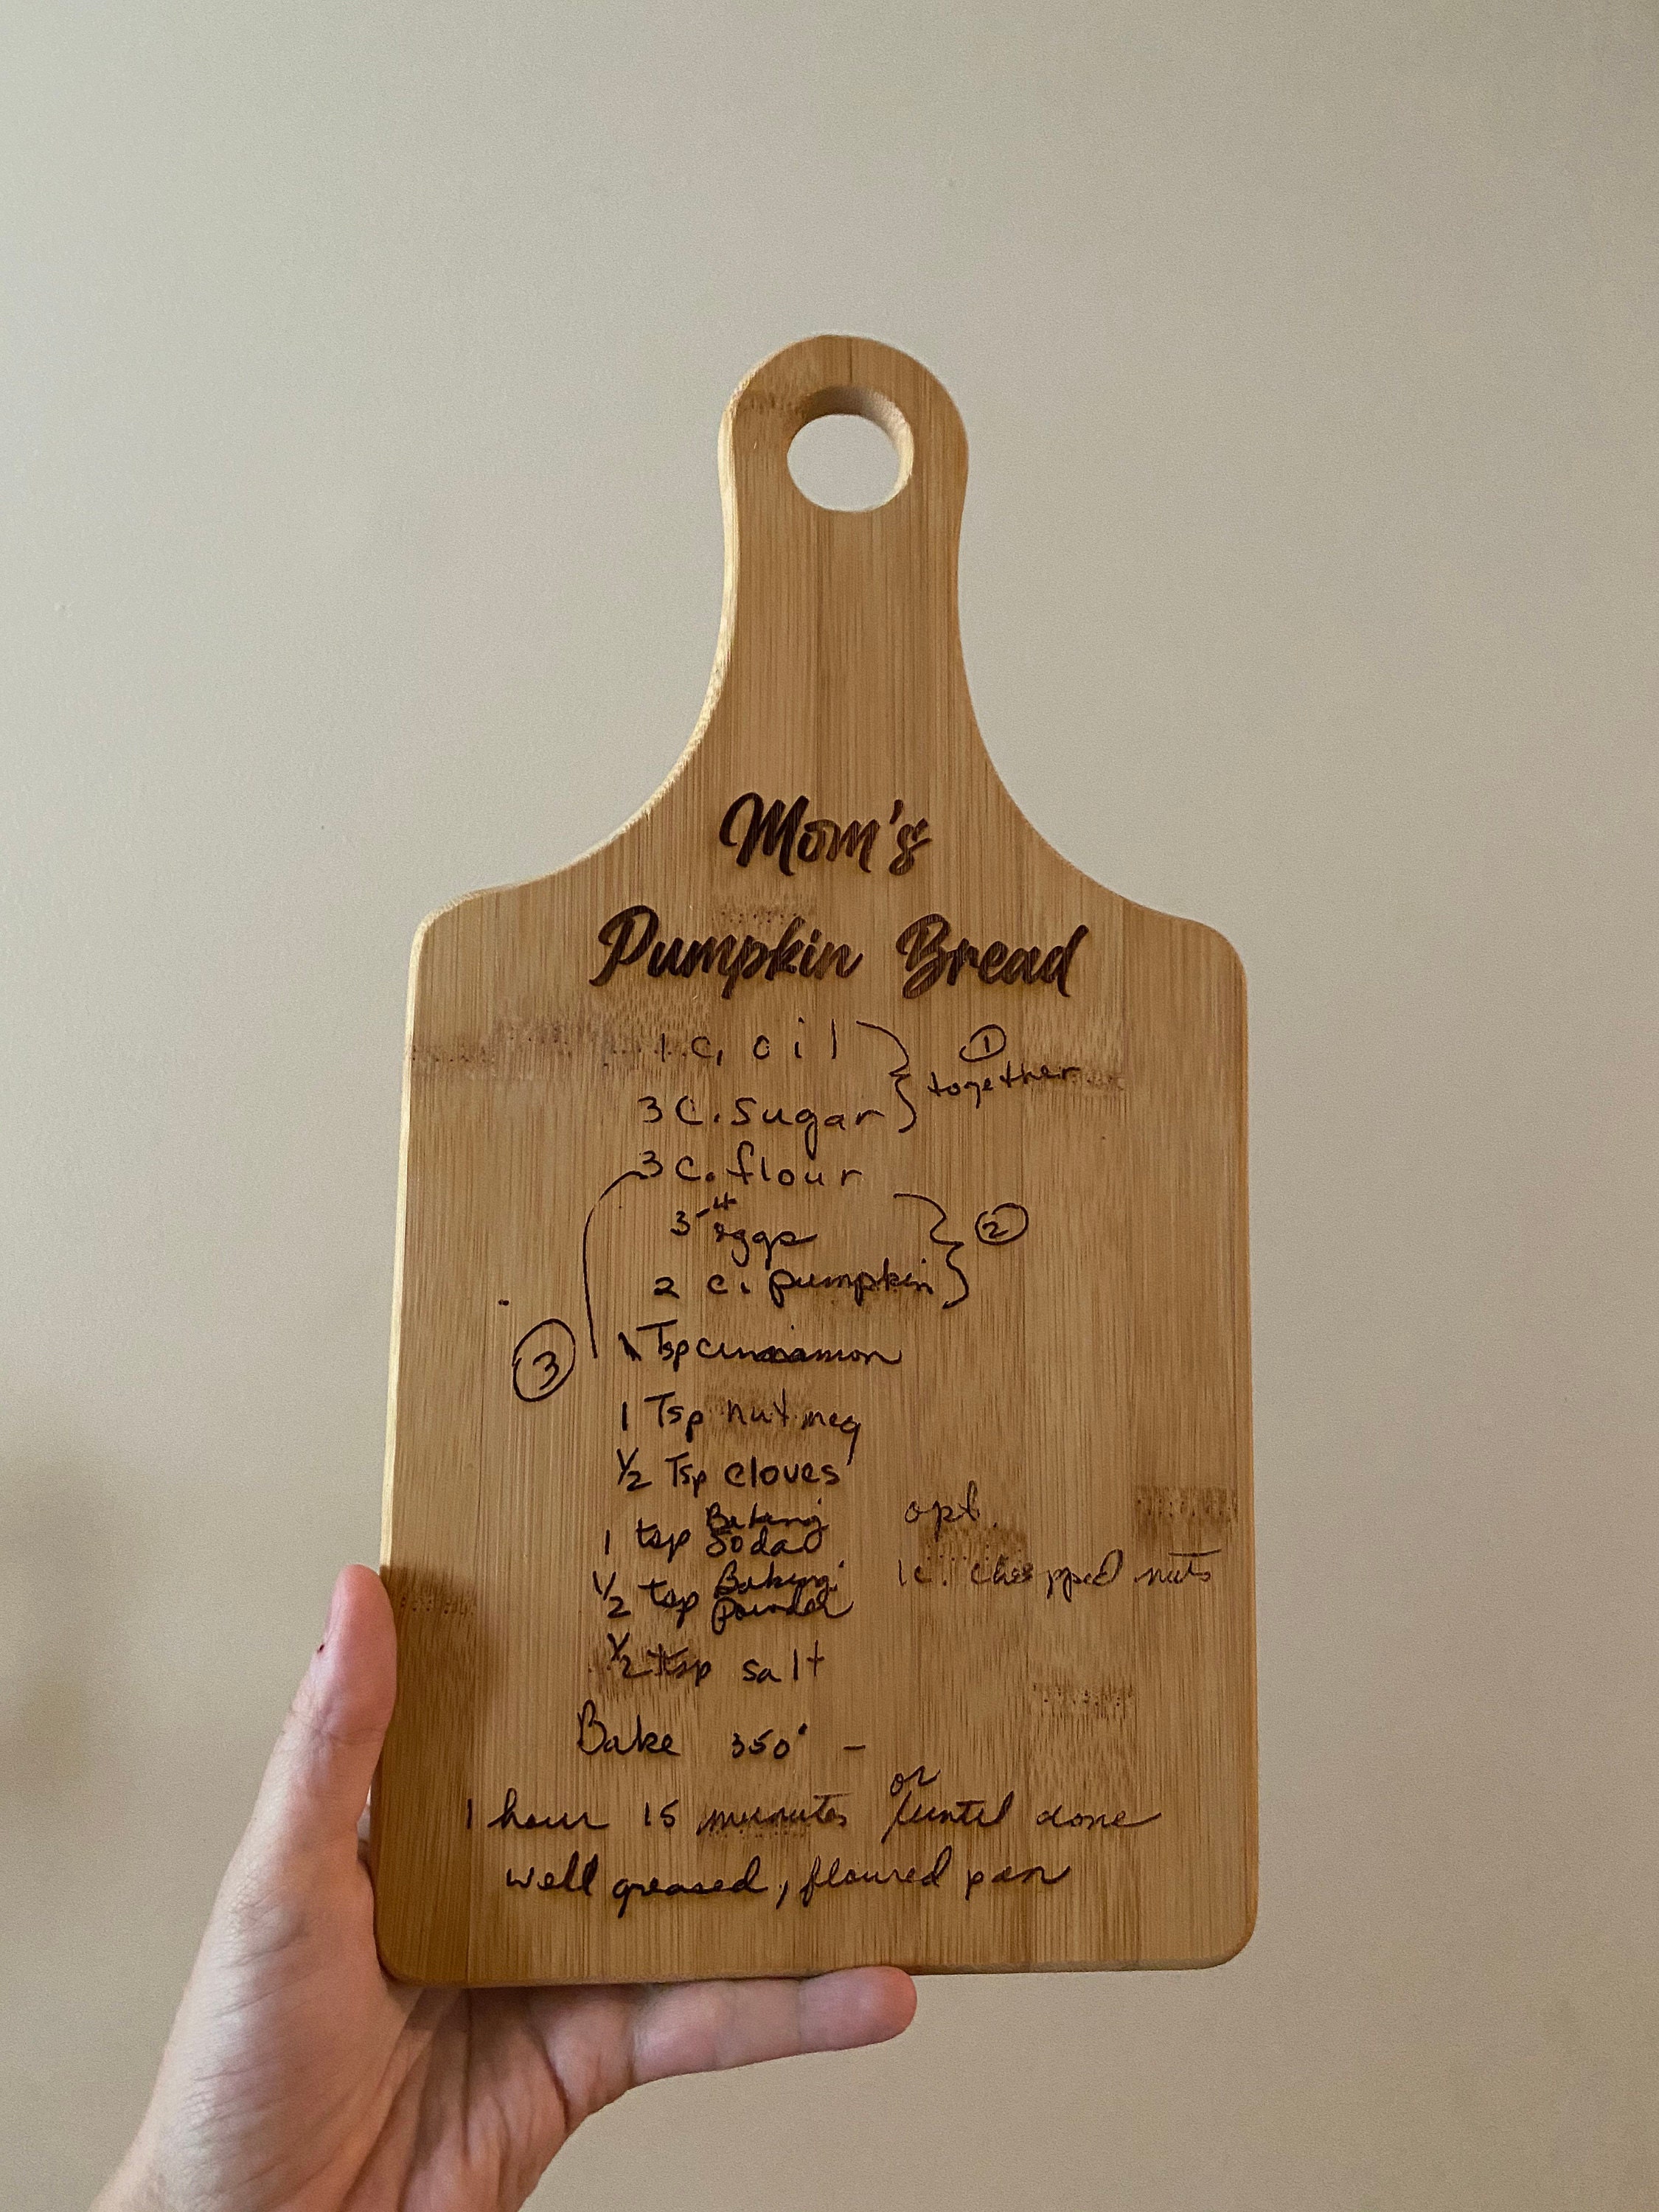 Mom's
Pumpkin Bread
1 c. oil
① together
3 C. Sugar
3 C. flour
3-4 eggs
②
2 c. pumpkin
③
1 Tsp cinnamon
1 Tsp nutmeg
1/2 Tsp cloves
1 tsp Baking Soda
opt.
1/2 tsp Baking powder
1c. chopped nuts
1/2 tsp salt
Bake 350° -
1 hour 15 minutes or / until done
well greased, floured pan